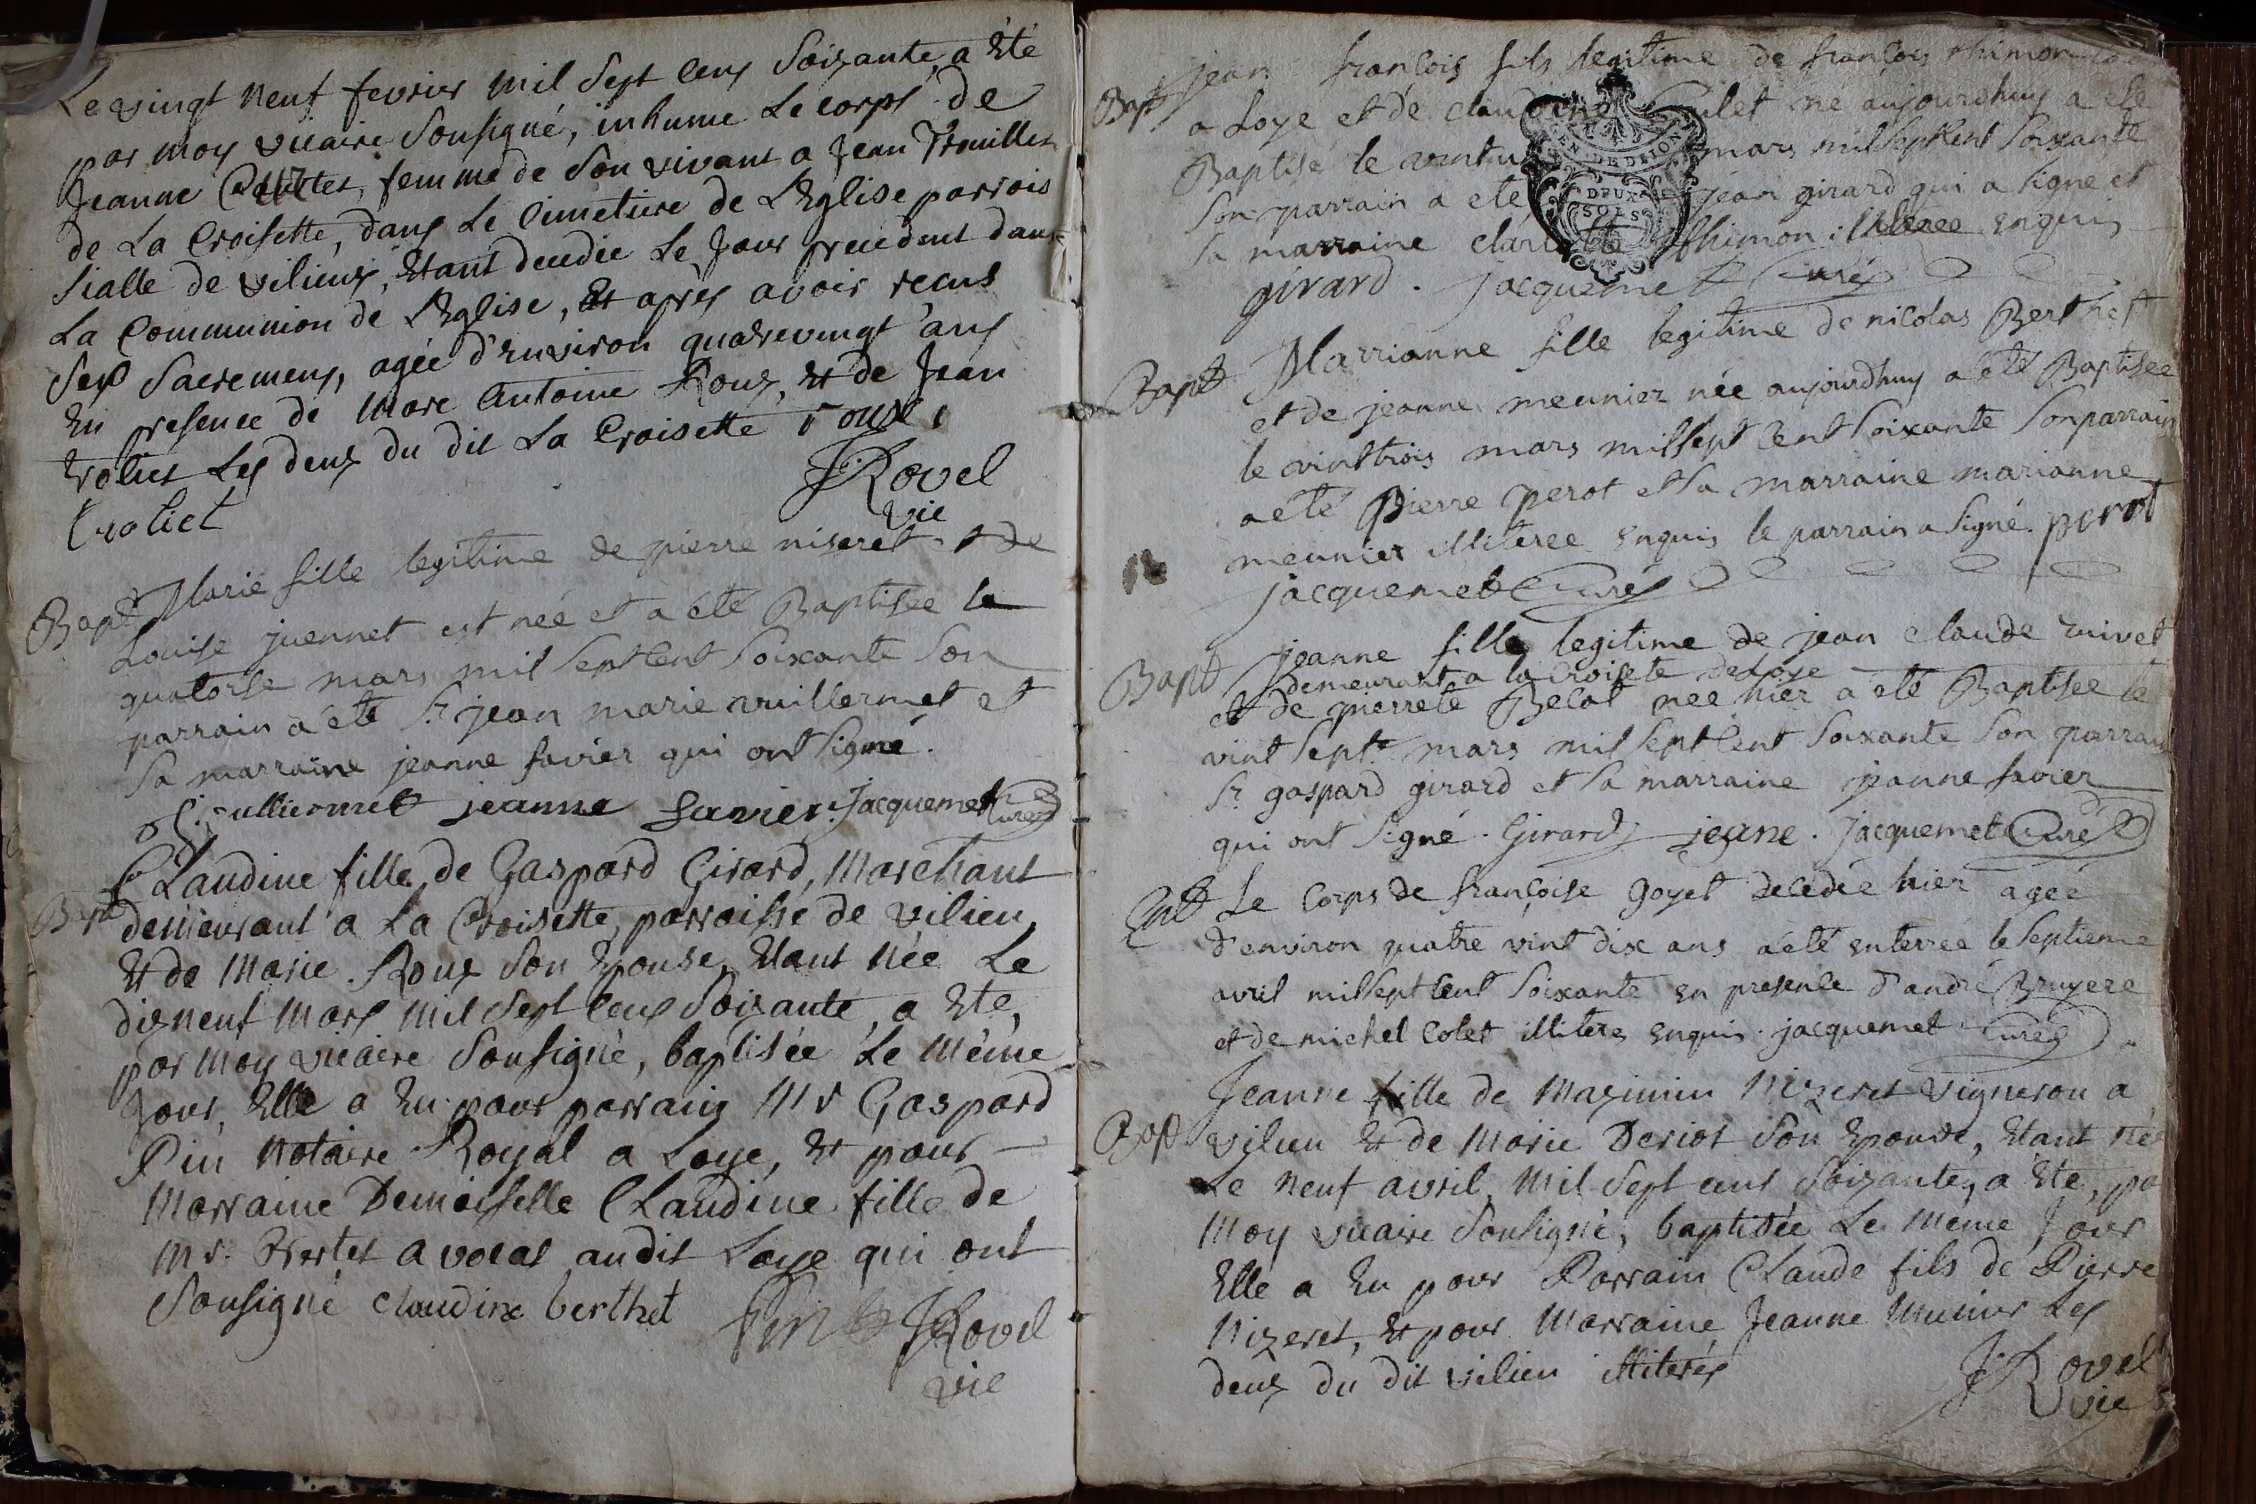 Le vingt neuf fevrier mil Sept Cens Soixante, a Eté
par moy vicaire Sousigné, inhumé Le corps de
Jeanne femme de Son vivant a Jean
de La Croisette, dans Le Cimetiere de L'Eglise parrois
sialle de vilieux, Etant decedée Le Jour precedent dans
La Communion de L'Eglise, Et après avoir recus
Ses Sacremens, agée d'Environ quatrevingt ans
En presence de Marc Antoine Roux, Et de Jean
Troliet Les deux du dit La Croisette roux,
troliet JRovel
vic
Bapt Marie fille legitime de pierre niseret et de
Louise juennet est née et a été Baptisée le
quatorse mars mil sept Cent Soixante Son
parrain a été Sr jean marie vuillermet et
Sa marraine jeanne favier qui ont Signé.
jeanne favier. Jacquemet Curé
Bapt Claudine fille de Gaspard Girard, Marchant
demeurant a La Croisette, parroisse de vilieu,
Et de Marie Roux Son Epouse, Etant Née Le
dixneuf Mars Mil Sept Cens Soixante, a Eté,
par Moy vicaire Sousigné, baptisée Le Même
Jour, Elle a Eu pour parrain Mr Gaspard
Pin Notaire Royal a Loye, Et pour
Marraine Demoiselle Claudine fille de
Mr. Bertet avocat audit Loye qui ont
Sousigné Claudine berthet Pin JRovel
vic
Bapt jean francois fils legitime de françois thimon
a Loye et de Claudine né aujourdhuy a été
Baptisé le mars mil sept Cent Soixante
Son parrain a été jean girard qui a signé et
Sa marraine thimon illiterée Enquis
girard. jacquemet Curé
GEN. DE DIJON
DEUX
SOLS
Bapt Marrianne fille legitime de nicolas Berthet
et de jeanne meunier née aujourdhuy a été Baptisée
le vint trois mars mil sept Cent Soixante Son parrain
a été Pierre perot et sa marraine marianne
meunier illiterée Enquis le parrain a Signé. perot
jacquemet Curé
Bapt jeanne fille legitime de jean Claude vivet
demeurant a la Croisete de Loye
et de pierrete Becat née hier a été Baptisée le
vint Sept mars mil sept Cent Soixante Son parrain
Sr gaspard girard et Sa marraine jeanne favier
qui ont Signé. Girard jeane. Jacquemet Curé
Ent Le Corps de françoise goyet decedée hier agée
d'environ quatre vint dix ans a été Enterrée le Septieme
avril mil sept Cent Soixante En presence d'andré Bruyere
et de michel Colet illiteres Enquis. jacquemet Curé
Bapt Jeanne fille de Maximin Nizeret vigneron a
vilieu Et de Marie Deriot Son Epouse, Etant Née
Le Neuf avril Mil Sept cens Soixante, a Eté, pa
Moy vicaire Sousigné, baptisée Le Même Jour
Elle a Eu pour Parrain Claude fils de Pierre
Nizeret, Et pour Marraine Jeanne Munier Les
deux du dit vilieu illiterés JRovel
vic